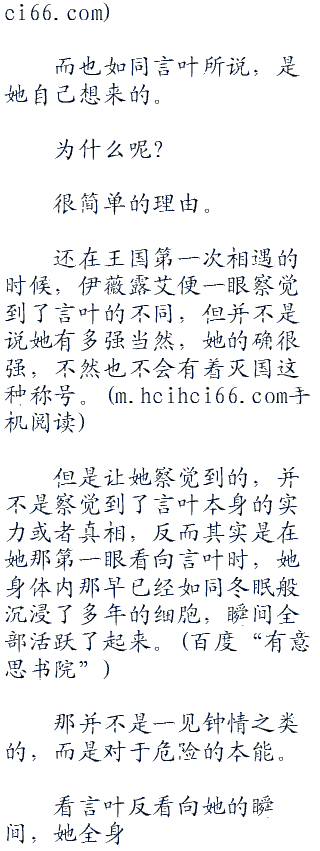 ci66.com)
而也如同言叶所说，是
她自己想来的。
为什么呢？
很简单的理由。
还在王国第一次相遇的
时候，伊薇露艾便一眼察觉
到了言叶的不同，但并不是
说她有多强当然，她的确很
强，不然也不会有着灭国这
种称号。(m.hcihci66.com手
机阅读)
但是让她察觉到的，并
不是察觉到了言叶本身的实
力或者真相，反而其实是在
她那第一眼看向言叶时，她
身体内那早已经如同冬眠般
沉浸了多年的细胞，瞬间全
部活跃了起来。(百度“有意
思书院”)
那并不是一见钟情之类
的，而是对于危险的本能。
看言叶反看向她的瞬
间，她全身